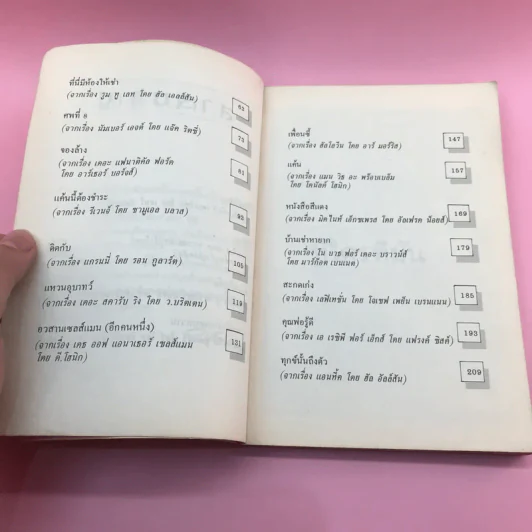 ที่นี่มีห้องให้เช่า
(จากเรื่อง รูม ทู เลท โดย ฮัล เอลล์สัน) 63
ศพที่ ๑
(จากเรื่อง นัมเบอร์ เอจต์ โดย แจ๊ค ริตชี่) 73
ของล้าง
(จากเรื่อง เดอะ แฟนาติคัล ฟอร์ด
โดย อาร์เธอร์ บอร์จส์) 81
แค้นนี้ต้องชำระ
(จากเรื่อง รีเวนจ์ โดย ซามูเอล บลาส) 95
ติดกับ
(จากเรื่อง แกรนนี่ โดย รอน กูลาร์ต) 105
แหวนอุบาทว์
(จากเรื่อง เดอะ สคารับ ริง โดย ว.บริตเตน) 119
อวสานเซลส์แมน (อีกคนหนึ่ง)
(จากเรื่อง เดธ ออฟ แอนาเธอร์ เซลส์แมน
โดย ดี.โฮนิก) 131
เพื่อนชี้
(จากเรื่อง ฮัลโอวีน โดย อาร์ มอร์ริส) 147
แค้น
(จากเรื่อง แมน วิธ อะ พร็อบเบล็ม
โดย โดนัลด์ โฮนิก) 157
หนังสือสีแดง
(จากเรื่อง มิดไนท์ เอ็กซเพรส โดย อัลเฟรด น้อยส์) 169
บ้านเช่าหายาก
(จากเรื่อง โน บาธ ฟอร์ เดอะ บราวน์ส์
โดย มาร์ก๊อต เบนเนต) 179
สะกดเก่ง
(จากเรื่อง เลฟิเทชั่น โดย โจเซฟ เพย์น เบรนแนน) 185
คุณพ่อรู้ดี
(จากเรื่อง เอ เรซิพี ฟอร์ เอ็กส์ โดย แฟรงค์ ซิสค์) 193
ทุกข์นั้นถึงตัว
(จากเรื่อง แอนทิ้ค โดย ฮัล อัลส์สัน) 209